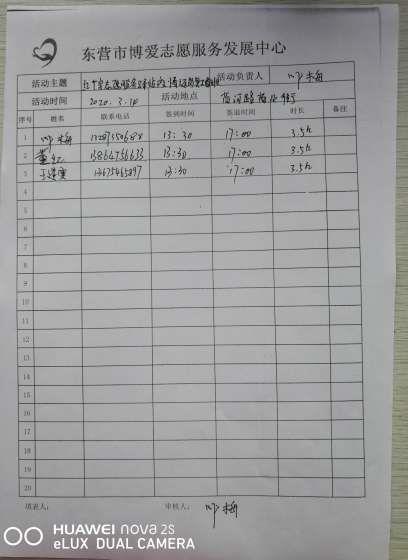 东营市博爱志愿服务发展中心
活动主题 红十字志愿服务 活动负责人 叶梅
活动时间 2020.3.10 活动地点 黄河路
序号 姓名 联系电话 签到时间 签退时间 时长 备注
1 叶梅 13:30 17:00 3.5h
2 董红 13864756633 13:30 17:00 3.5h
3 13675465897 13:30 17:00 3.5h
4
5
6
7
8
9
10
11
12
13
14
15
16
17
18
19
20
填表人: 审核人: 叶梅
HUAWEI nova 2s
eLUX DUAL CAMERA